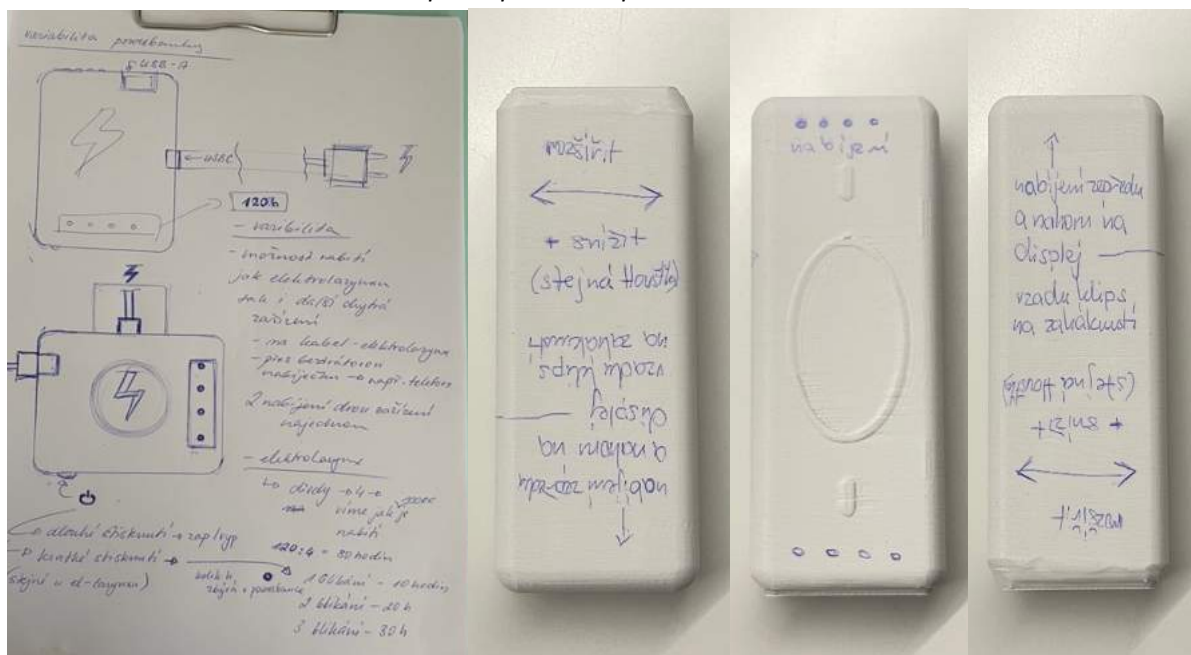 variabilita powerbanky
USB-A
USBC
120h
- varibilita
- možnost nabití
jak elektrolarynx
tak i další chytrá
zařízení
- na kabel - elektrolarynx
- přes bezdrátovou
nabíječku → např. telefon
2 nabíjení dvou zařízení
najednou
- elektrolarynx
↳ diody → 4 →
víme jak je
nabití
120:4 = 30 hodin
→ dlouhé stisknutí → zap/vyp
→ krátké stisknutí →
(stejné u el-larynxu)
kolik h
1 blikání - 10 hodin
2 blikání - 20 h
3 blikání - 30 h
rozšířit
+ snížit
(stejná tloušťka)
nabíjení zepředu
a nahoru na
displej
vzadu klips
na zaháknutí
nabíjení
nabíjení zepředu
a nahoru na
displej
vzadu klips
na zaháknutí
+ snížit
rozšířit